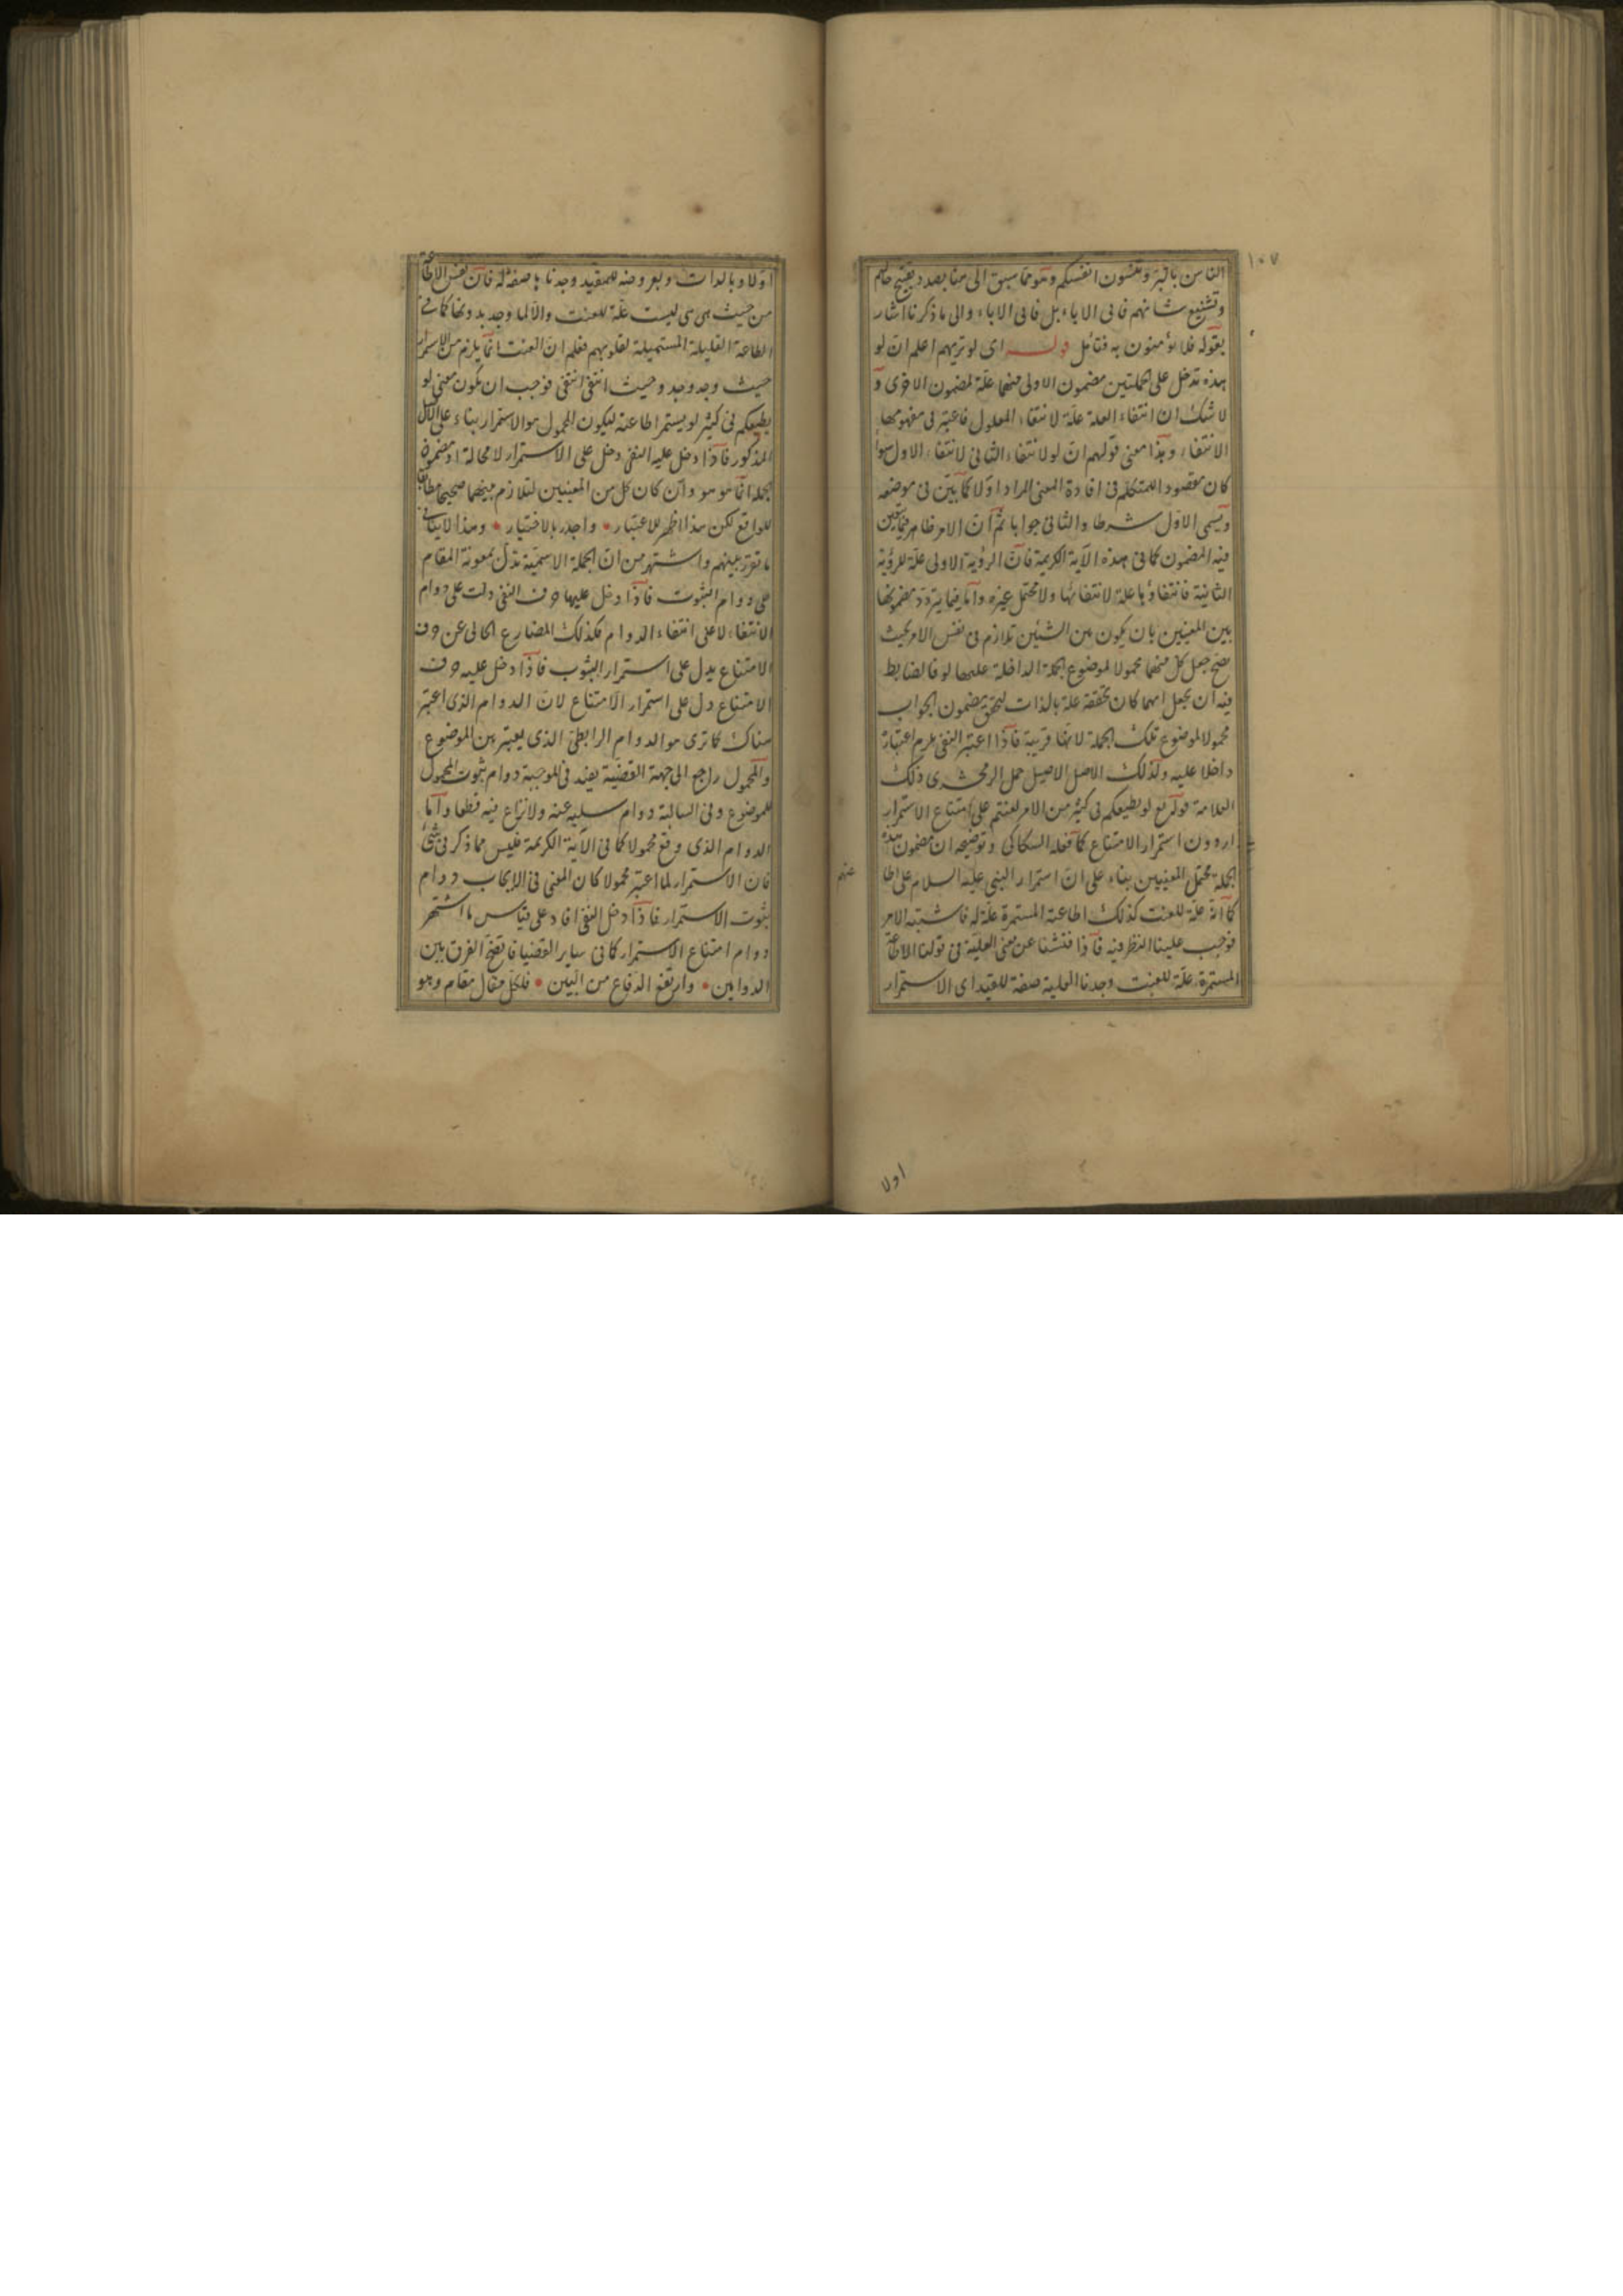 ١٠٧
الناس بالبر وتنسون انفسكم وهو مما سبق الى هنا بصدد تقبيح حالهم
وتشنيع شانهم فانى الاباء بل فانى الاباء والى ما ذكرنا اشار
بقوله فلا يؤمنون به فتأمل قوله اى لو تريهم اعلم ان لو
هذه تدخل على الجملتين مضمون الاولى منهما علة لمضمون الاخرى و
لا شك ان انتفاء العلة علة لانتفاء المعلول فاعتبر فى مفهومها
الانتفاء وهذا معنى قولهم ان لو لانتفاء الثانى لانتفاء الاول سواء
كان مقصود المتكلم فى افادة المعنى المراد اولا كما بين فى موضعه
ويسمى الاول شرطا والثانى جوابا ثم ان الامر ظاهر فيما تعين
فيه المضمون كما فى هذه الآية الكريمة فان الرؤية الاولى علة للرؤية
الثانية فانتفاؤها علة لانتفائها ولا محتمل غيره واما فيما يتردد مضمونها
بين المعنيين بان يكون بين الشيئين تلازم فى نفس الامر بحيث
يصح جعل كل منهما محمولا لموضوع الجملة الداخلة عليها لو فالضابط
فيه ان يجعل ايهما كان تحققه علة بالذات لتحقق مضمون الجواب
محمولا لموضوع تلك الجملة لانها قريبة فاذا اعتبر النفى يلزم اعتباره
داخلا عليه ولذلك الاصل الاصيل حمل الزمخشرى ذلك
العلامة قوله تع لو يطيعكم فى كثير من الامر لعنتم على امتناع الاستمرار
اردون استمرار الامتناع كما فعله السكاكى وتوضيحه ان مضمون هذه
الجملة محتمل المعنيين بناء على ان استمرار النبى عليه السلام على اطا
عتهم
كما انه علة للعنت كذلك اطاعته المستمرة علة له فاشتبه الامر
فوجب علينا النظر فيه فاذا فتشنا عن معنى العلية فى قولنا الاطاعة
المستمرة علة للعنت وجدنا العلية صفة للقيد اى الاستمرار
اولا
اولا وبالذات وبعروضه للمقيد وجدناها صفة له فان نفس الاطاعة
من حيث هى هى ليست علة للعنت والا لما وجد بدونها كما فى
الطاعة القليلة المستميلة لقلوبهم فعلم ان العنت انما يلزم من الاستمرار
حيث وجد وجد وحيث انتفى انتفى فوجب ان يكون معنى لو
يطيعكم فى كثير لو يستمر اطاعته ليكون المحمول هو الاستمرار بناء على الاصل
المذكور فاذا دخل عليه النفى دخل على الاستمرار لا محالة اذ مضمون
الجملة انما هو هو وان كان كل من المعنيين لتلازم بينهما صحيحا مطابقا
للواقع لكن هذا اظهر للاعتبار واجدر بالاختيار وهذا لا ينافى
ما تقرر بينهم واشتهر من ان الجملة الاسمية تدل بمعونة المقام
على دوام الثبوت فاذا دخل عليها حرف النفى دلت على دوام
الانتفاء لا على انتفاء الدوام فكذلك المضارع الخالى عن حرف
الامتناع يدل على استمرار الثبوت فاذا دخل عليه حرف
الامتناع دل على استمرار الامتناع لان الدوام الذى اعتبر
هناك كما ترى هو الدوام الرابطى الذى يعتبر بين الموضوع
والمحمول راجع الى جهة القضية يفيد فى الموجبة دوام ثبوت المحمول
للموضوع وفى السالبة دوام سلبه عنه ولا نزاع فيه قطعا واما
الدوام الذى وقع محمولا كما فى الآية الكريمة فليس مما ذكر فى شئ
فان الاستمرار لما اعتبر محمولا كان المعنى فى الايجاب دوام
ثبوت الاستمرار فاذا دخل النفى افاد على قياس ما اشتهر
دوام امتناع الاستمرار كما فى ساير القضايا فاتضح الفرق بين
الدوامين وارتفع الدفاع من البين فلكل مقال مقام وهو